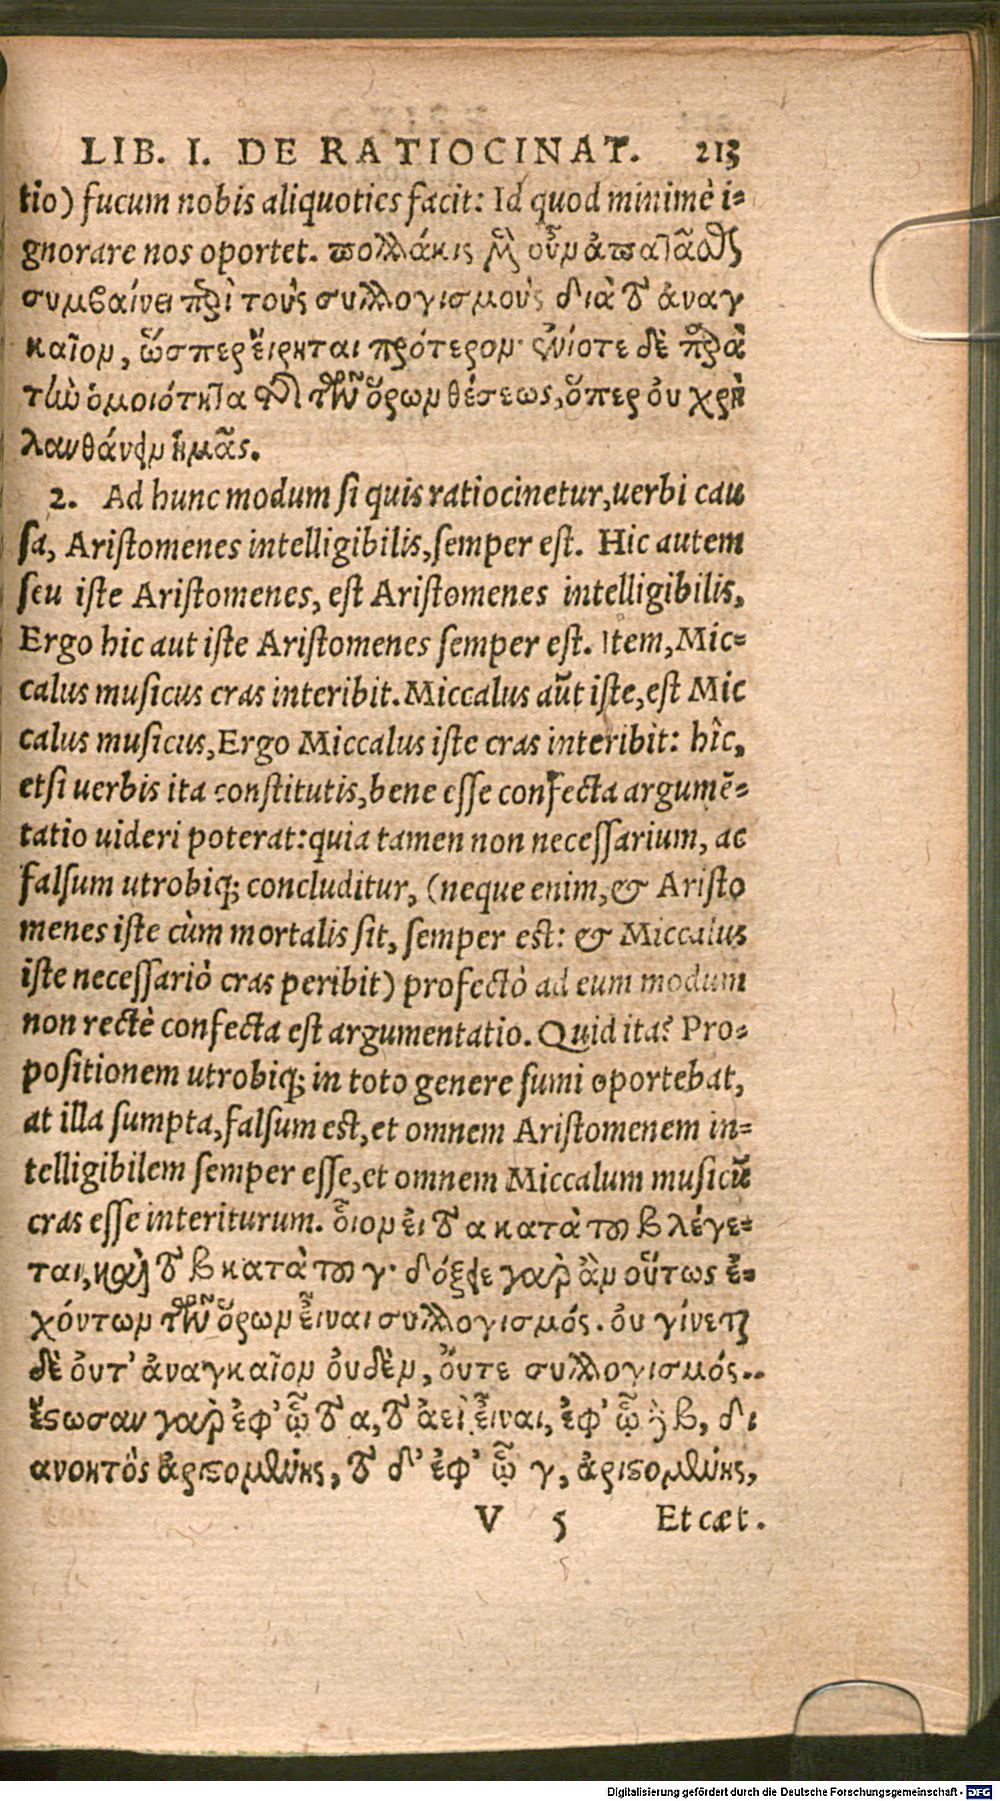 LIB. I. DE RATIOCINAT. 213
tio) fucum nobis aliquoties facit: Id quod minimè i-
gnorare nos oportet. πολλάκις μὲν οὖν ἀπατᾶσθαι
συμβαίνει περὶ τοὺς συλλογισμοὺς διὰ τὸ ἀναγ
καῖον, ὥσπερ εἴρηται πρότερον· ἐνίοτε δὲ παρὰ
τὴν ὁμοιότητα τῆς τῶν ὅρων θέσεως, ὅπερ οὐ χρὴ
λανθάνειν ἡμᾶς.
2. Ad hunc modum si quis ratiocinetur, uerbi cau
sa, Aristomenes intelligibilis, semper est. Hic autem
seu iste Aristomenes, est Aristomenes intelligibilis,
Ergo hic aut iste Aristomenes semper est. Item, Mic-
calus musicus cras interibit. Miccalus aūt iste, est Mic
calus musicus, Ergo Miccalus iste cras interibit: hîc,
etsi uerbis ita constitutis, bene esse confecta argumē-
tatio uideri poterat: quia tamen non necessarium, ac
falsum utrobiq; concluditur, (neque enim, & Aristo
menes iste cùm mortalis sit, semper est: & Miccalus
iste necessariò cras peribit) profectò ad eum modum
non rectè confecta est argumentatio. Quid ita? Pro-
positionem utrobiq; in toto genere sumi oportebat,
at illa sumpta, falsum est, et omnem Aristomenem in-
telligibilem semper esse, et omnem Miccalum musicū
cras esse interiturum. οἷον εἰ τὸ α κατὰ τοῦ β λέγε-
ται, καὶ τὸ β κατὰ τοῦ γ· δόξειε γὰρ ἂν οὕτως ἐ-
χόντων τῶν ὅρων εἶναι συλλογισμός. οὐ γίνεται
δὲ οὔτ' ἀναγκαῖον οὐδὲν, οὔτε συλλογισμός..
ἔστωσαν γὰρ ἐφ' ᾧ τὸ α, τὸ ἀεὶ εἶναι, ἐφ' ᾧ δὲ β, δι
ανοητὸς ἀριστομένης, τὸ δ' ἐφ' ᾧ γ, ἀριστομένης,
V 5 Et cæt.
Digitalisierung gefördert durch die Deutsche Forschungsgemeinschaft - DFG